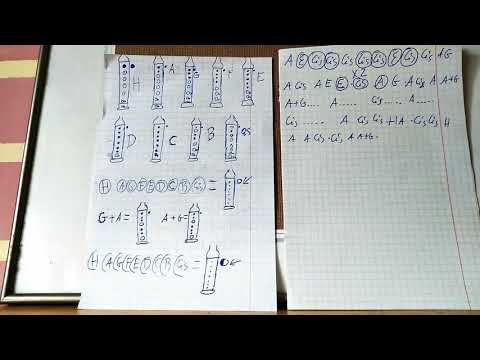 H A G F E
D C B GS
H A G F E D C B Gs =
G+A = A+G =
H A G F E D C B Gs =
A E Gs Gs Gs Gs Gs E Gs Gs A G
x2
A Gs A E E Gs A G A Gs A A+G
A+G.... A..... Gs.... A.....
Gs..... A Gs Gs H
A A Gs Gs A A+G.